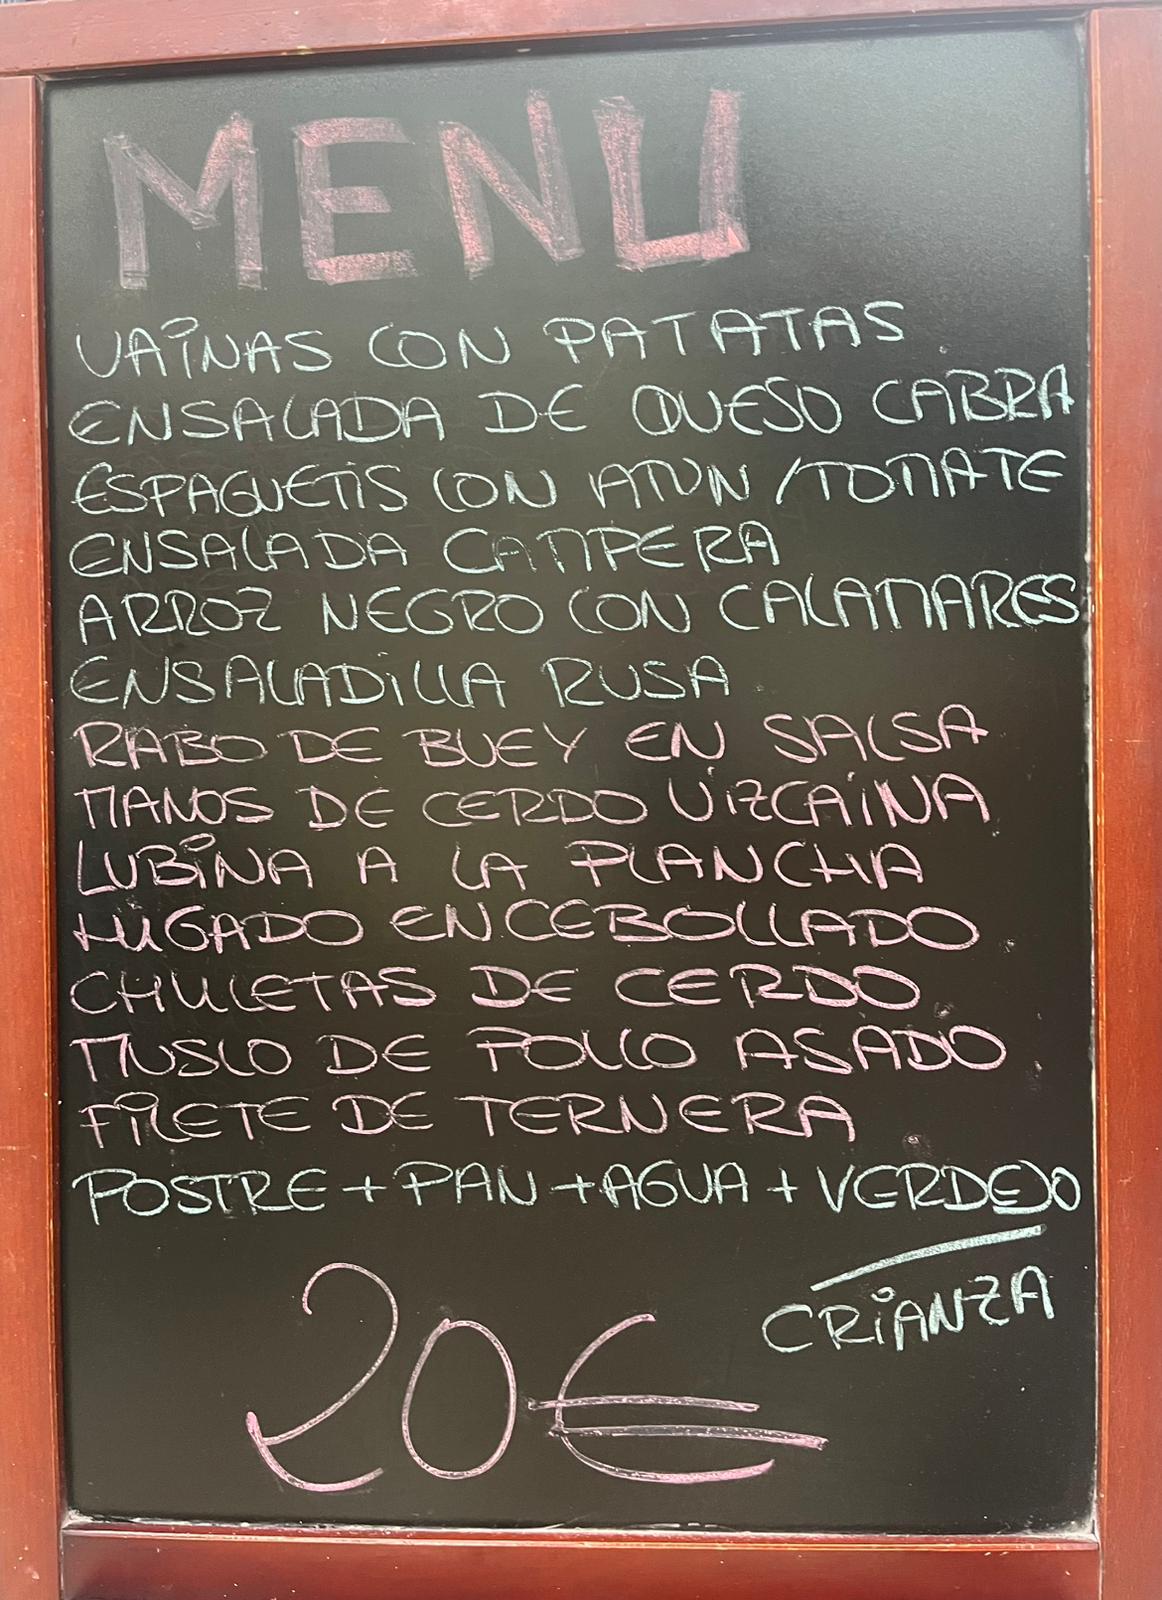 MENU
VAINAS CON PATATAS
ENSALADA DE QUESO CABRA
ESPAGUETIS CON ATUN /TOMATE
ENSALADA CAMPERA
ARROZ NEGRO CON CALAMARES
ENSALADILLA RUSA
RABO DE BUEY EN SALSA
MANOS DE CERDO VIZCAINA
LUBINA A LA PLANCHA
HIGADO ENCEBOLLADO
CHULETAS DE CERDO
MUSLO DE POLLO ASADO
FILETE DE TERNERA
POSTRE + PAN + AGUA + VERDEJO
CRIANZA
20€